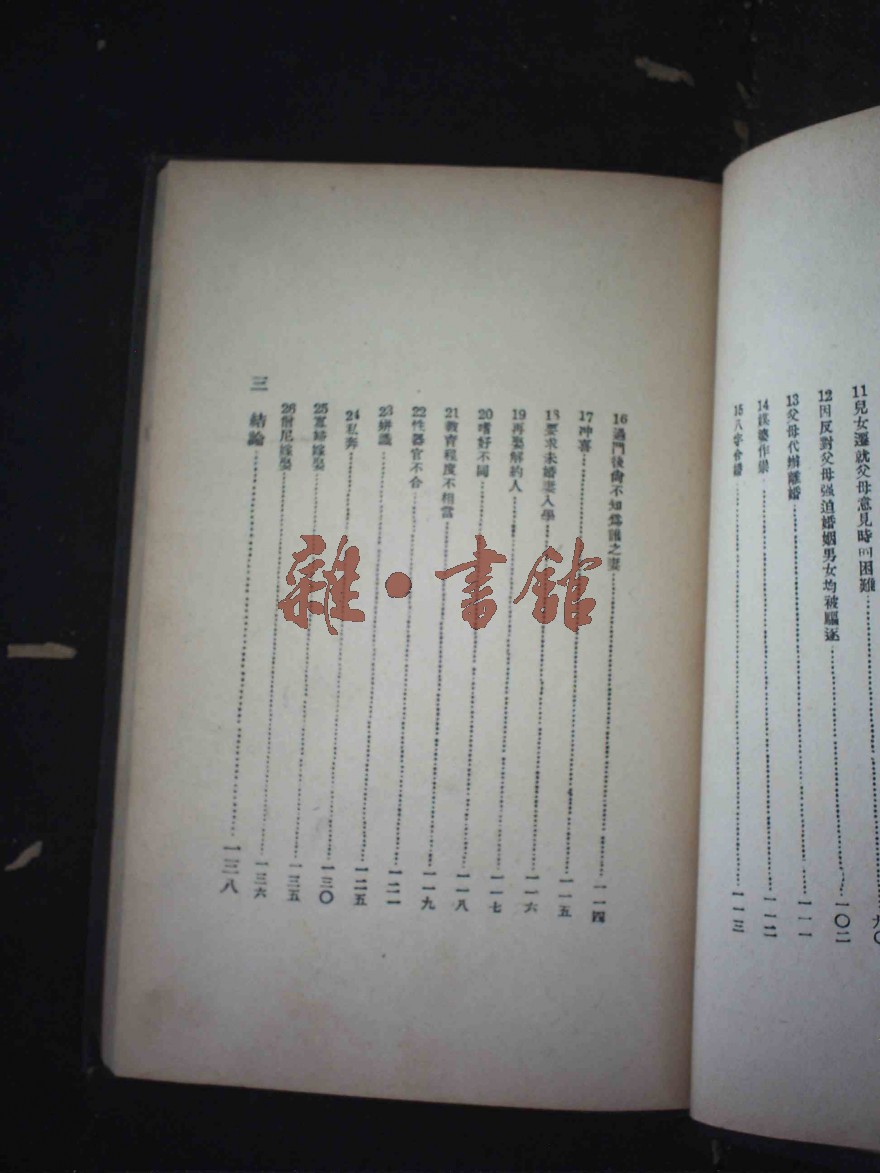 11兒女遷就父母意見時的困難……九〇
12因反對父母强迫婚姻男女均被驅逐……一〇二
13父母代辦離婚……一一一
14媒婆作祟……一一二
15八字合婚……一一三
16過門後尙不知爲誰之妻……一一四
17冲喜……一一五
18要求未婚妻入學……一一六
19再娶解約人……一一七
20嗜好不同……一一八
21敎育程度不相當……一一九
22性器官不合……一二一
23……一二五
24私奔……一三〇
25寡婦嫁娶……一三五
26僧尼嫁娶……一三六
三 結論……一三八
雜·書館